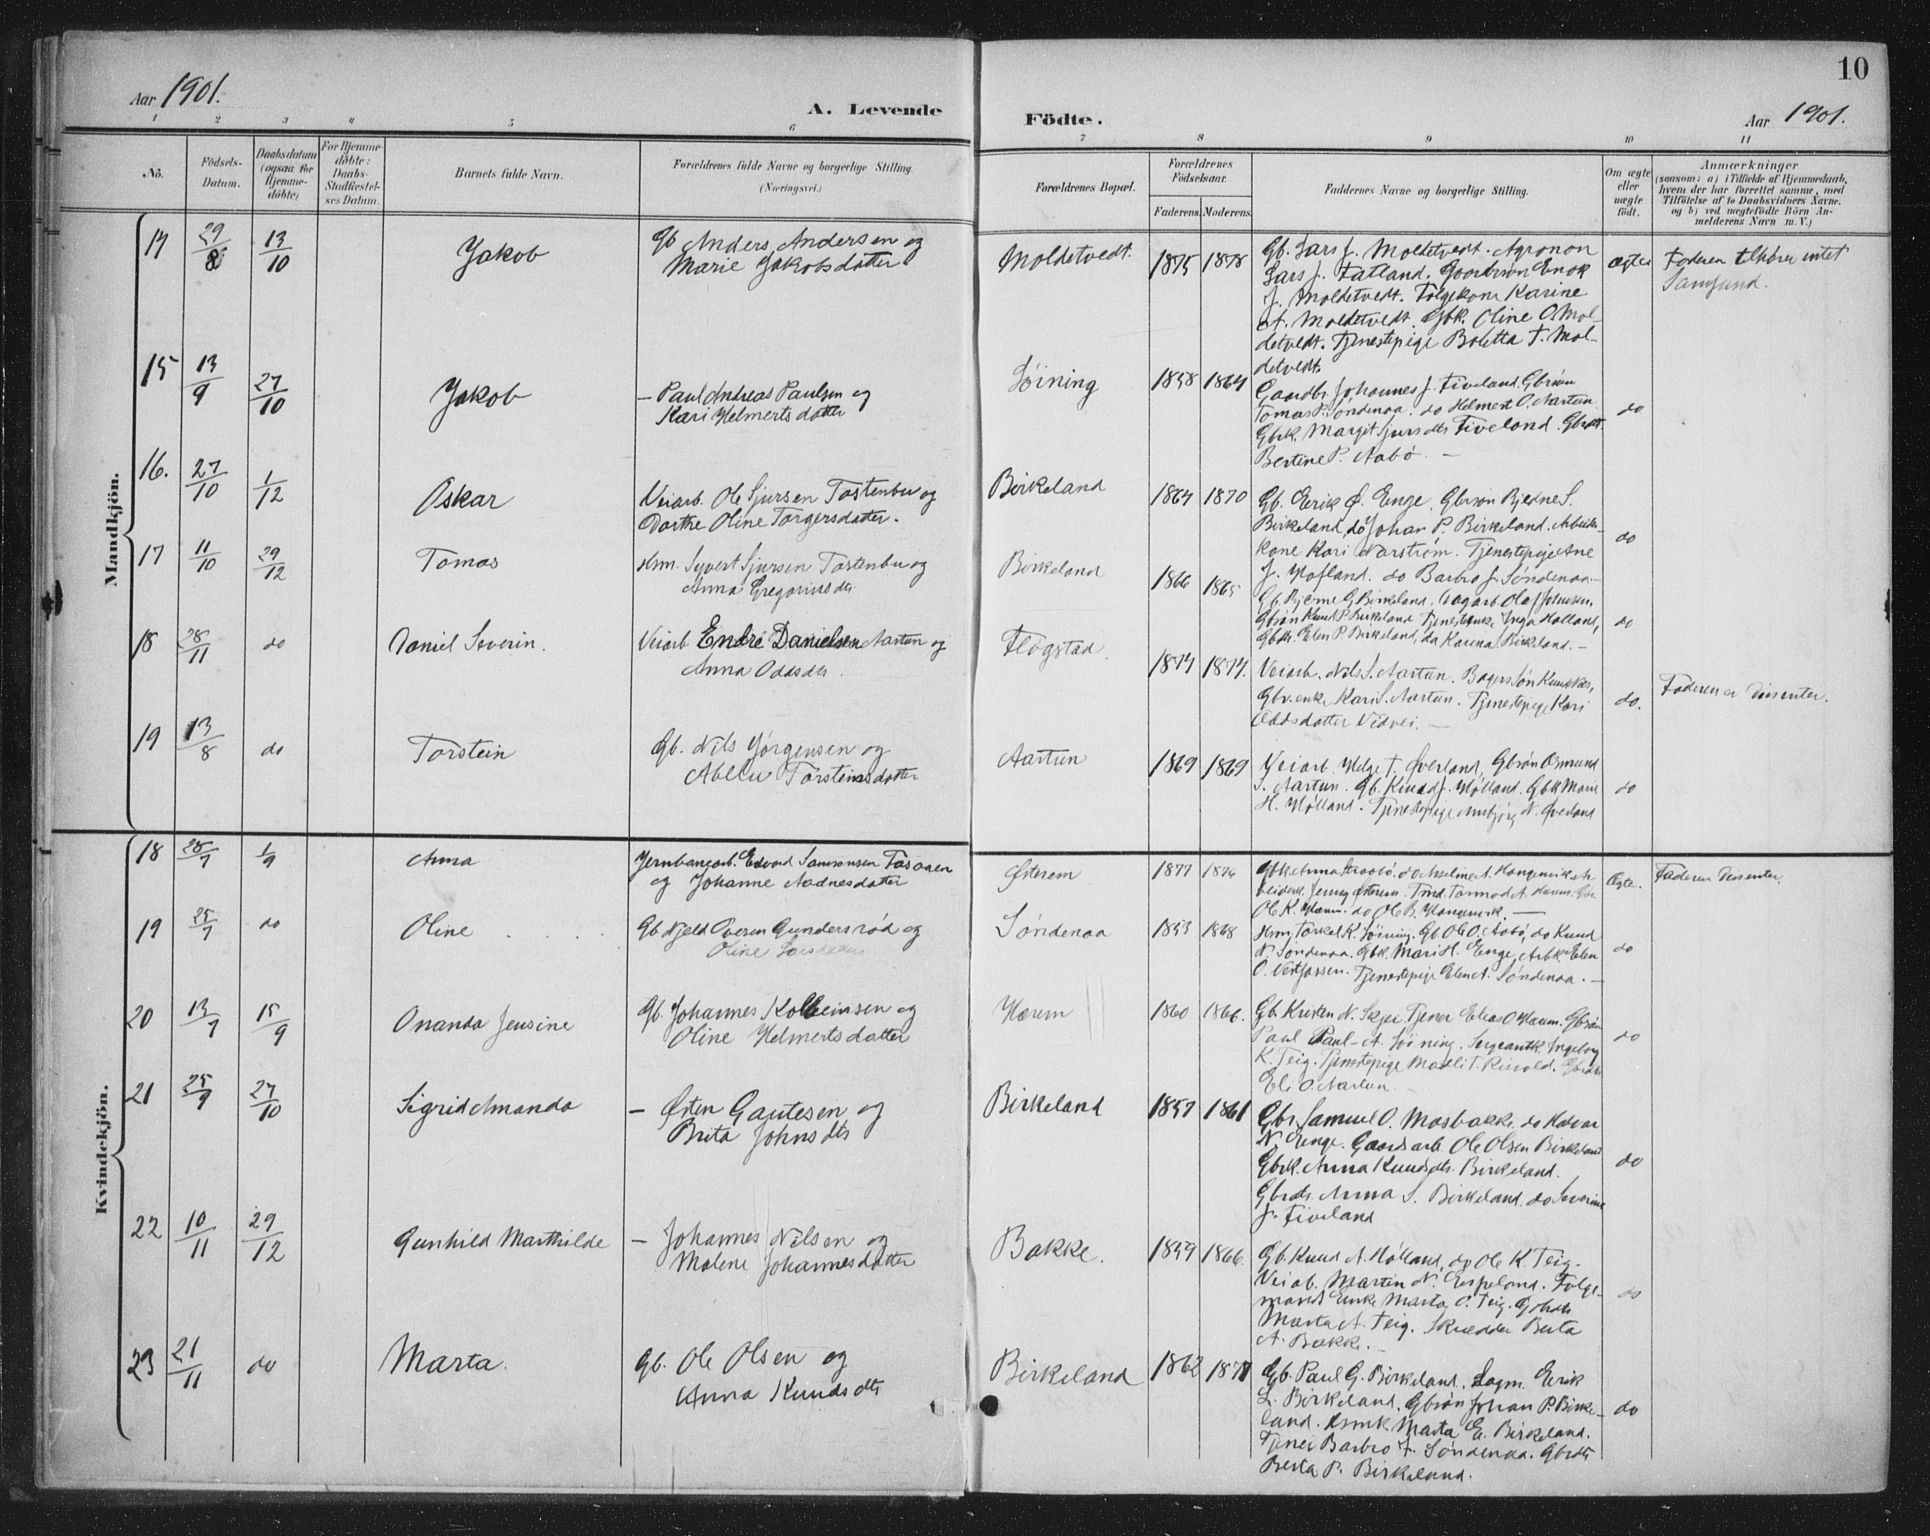 Aar 1901.
A. Levende
Födte.
Aar 1901.
10
1 2 3 4 5 6 7 8 9 10 11
No.
Födsels-
Datum.
Daabsdatum
(ogsaa for
Hjemme-
döbte)
For Hjemme-
döbte:
Daabs-
Stadfæstel-
ses Datum.
Barnets fulde Navn.
Forældrenes fulde Navne og borgerlige Stilling
(Næringsvei.)
Forældrenes Bopæl.
Forældrenes
Födselsaar.
Faderens. Moderens.
Faddernes Navne og borgerlige Stilling.
Om ægte
eller
uægte
födt.
Anmærkninger
(saasom: a) i Tilfælde af Hjemmedaab,
hvem der har forrettet samme, med
Tilföielse af to Daabsvidners Navne.
og b) ved uægtefödte Börn An-
melderens Navn m. V.)
Mandkjön.
14 29/8 13/10 Jakob Gb Anders Andersen og
Marie Jakobsdatter
Moldetvedt. 1875 1878 Gb. Lars J. Moldetvedt. Agronon
Lars J. Fatland. Enok
J. Moldetvedt. Folgekone Karine
A. Moldetvedt. Gbk. Oline O. Mol-
detvedt. Tjenestepige Boletta T. Mol-
detvedt.
ægte Faderen tilhører intet
Samfund.
15 13/9 27/10 Jakob – Paul Andreas Paulsen og
Kari Helmertsdatter
Söining 1858 1864 Gaardbr. Johannes J. Fiveland. Gbrsøn
Tomas P. Söndenaa. do Helmert O. Aartun
Gbrk. Margit Sjursdtr Fiveland. Gbrdtr.
Bertine P. Aabö. –
do
16. 27/10 1/12 Oskar Veiarb. Ole Sjursen Tostenbu og
Dorthe Oline Torgersdatter.
Birkeland 1864 1870 Gb. Eerik Ø. Enge. Gbrsøn Bjedne S.
Birkeland, do Johan P. Birkeland. Arbeider-
kone Kari Narström. Tjenestepige Ane
J. Hofland. do Barbro J. Söndenaa.–
do
17 11/10 29/12 Tomas Hsm. Syvert Sjursen Tostenbu og
Anna Gregoriusdtr
Birkeland 1866 1865 Gb. Bjerne G. Birkeland. Dagarb Ole J. Johnsen.
Gbrsön Knud P. Birkeland Inga Hølland,
Gbdtr. Elen P. Birkeland, do Karina Birkeland. –
do
18 28/11 do Daniel Severin. Veiarb Endre Danielsen Aartun og
Anna Oddsdtr.
Flögstad. 1874 1874. Veiarb. Nils S. Aartun.
Gbr.enke Kari S. Aartun. Tjenestepige Kari
Oddsdatter Vedvei. –
do. Faderen er Disenter.
19 13/8 do Torstein Gb. Nils Jørgensen og
Torsteinsdatter
Aartun 1869 1869 Veiarb. Helge T. Øverland, Gbrsön Osmund
S. Aartun. Gb. Knud J. Hölland. Gbk Marie
H. Hölland. Tjenestepige N. Øverland
do
Kvindekjön.
18 28/7 1/9 Anna Jernbanearb. Edvard Samsonsen Tosaaen
og Johanne Aadnesdatter
Østerem 1877 1876
Ole K. Hærem. do Ole B.
Ægte. Faderen Disenter.
19 25/7 do Oline Gb. Njeld Oversen Gundersröd og
Oline
Söndenaa 1853 1868 Hsm. Torkel K. Söining. Gb. Ole O. Aabö, do Knud
N. Söndenaa. Gbk. Mari H. Enge, Elen
O. Tjenestepige Elen A. Söndenaa. –
do
20 13/7 15/9 Ananda Jensine Gb. Johannes Kolbeinsen og
Oline Helmertsdatter
Hærem 1860 1866. Gb. Kristen N. Skjei Tjener Elias O. Hærem. Gbrsön
Paul Paul- A. Söining. Sergeantk. Ingeborg
K. Teig. Tjenestepige Malli T. Gbrdtr
Eli O. Aartun. –
do
21 25/9 27/10 Sigrid Amanda – Østen Gautesen og
Brita Johnsdtr
Birkeland 1857 1861 Gbr. Samuel O. Mosbakke, do Halvor
N. Enge. Gaardsarb. Ole Olsen Birkeland
Gbrk. Anna Knudsdtr. Birkeland.
Gbrdtr. Anna S. Birkeland do Severine
J. Fiveland
do
22 10/11 29/12 Gunhild Marthilde – Johannes Nilsen og
Malene Johannesdatter
Bakke. 1859 1866. Gb. Knud A. Hölland, do Ole K. Teig.
Veiab. Martin N. Espeland. Folge-
mands Enke Marta O. Teig. Gbrdtr
Marta A. Teig. Skrædder Berta
A. Bakke. –
do
23 21/11 do Marta. Gb. Ole Olsen og
Anna Knudsdtr
Birkeland 1862 1871 Gb. Paul G. Birkeland. Lagm. Eerik
L. Birkeland. Gbrsön Johan P. Birke-
land. Hsmk. Marta E. Birkeland.
Tjenei Barbro J. Söndenaa. Gbrdtr
Berta P. Birkeland.
do